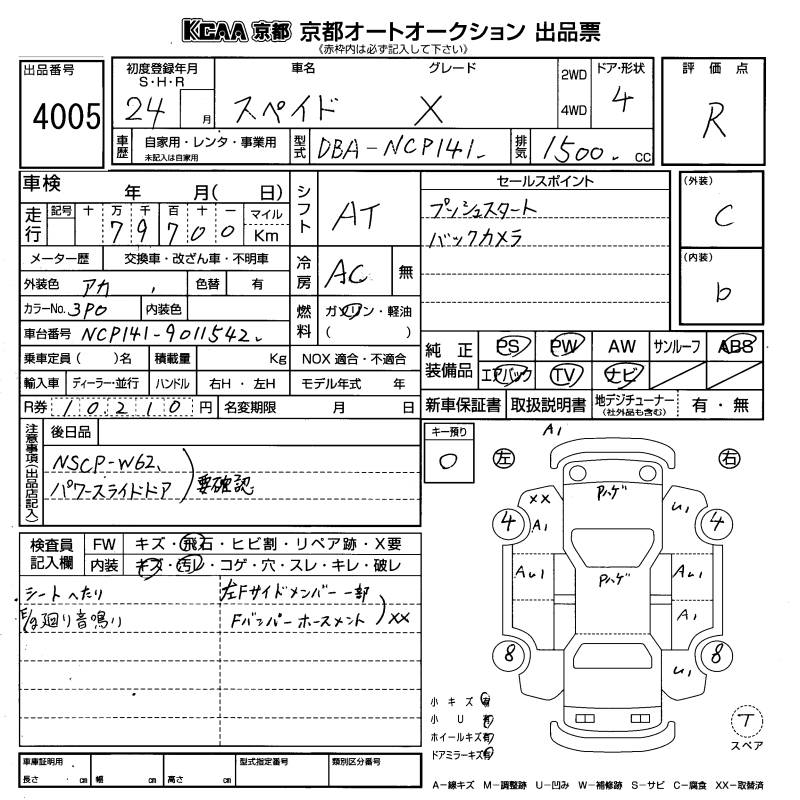 KCAA 京都 京都オートオークション 出品票
《赤枠内は必ず記入して下さい》
出品番号
4005
初度登録年月
S・H・R
24 月
車名
スペイド
グレード
X
2WD
4WD
ドア・形状
4
評価点
R
車歴
自家用・レンタ・事業用
未記入は自家用
型式
DBA-NCP141
排気
1500 CC
車検 年 月( 日)
走行
記号 十 万 千 百 十 一 マイル
79700 Km
メーター歴 交換車・改ざん車・不明車
外装色 アカ 色替 有
カラーNo. 3P0 内装色
車台番号 NCP141-9011542
乗車定員( )名 積載量 Kg
輸入車 ディーラー・並行 ハンドル 右H・左H
R券 10210 円 名変期限 月 日
シフト
AT
冷房
AC 無
燃料
ガソリン・軽油
( )
NOX 適合・不適合
モデル年式 年
セールスポイント
プッシュスタート
バックカメラ
(外装)
C
(内装)
b
純正装備品
PS PW AW サンルーフ ABS
エアバック TV ナビ
新車保証書 取扱説明書 地デジチューナー
(社外品も含む)
有・無
注意事項(出品店記入)
後日品
NSCP-W62
パワースライドドア
要確認
検査員記入欄
FW キズ・飛石・ヒビ割・リペア跡・X要
内装 キズ・汚レ・コゲ・穴・スレ・キレ・破レ
シートへたり
廻り音鳴り
左Fサイドメンバー一部
Fバンパーホースメント
XX
キー預り
○
A1
左
右
XX
A1
Pハゲ
U1
4
4
AU1
Pハゲ
AU1
A1
8
8
U1
小キズ 有
小U 有
ホイールキズ 有
ドアミラーキズ 有
T
スペア
車庫証明用
長さ cm 幅 cm 高さ cm
型式指定番号
類別区分番号
A-線キズ M-調整跡 U-凹み W-補修跡 S-サビ C-腐食 XX-取替済